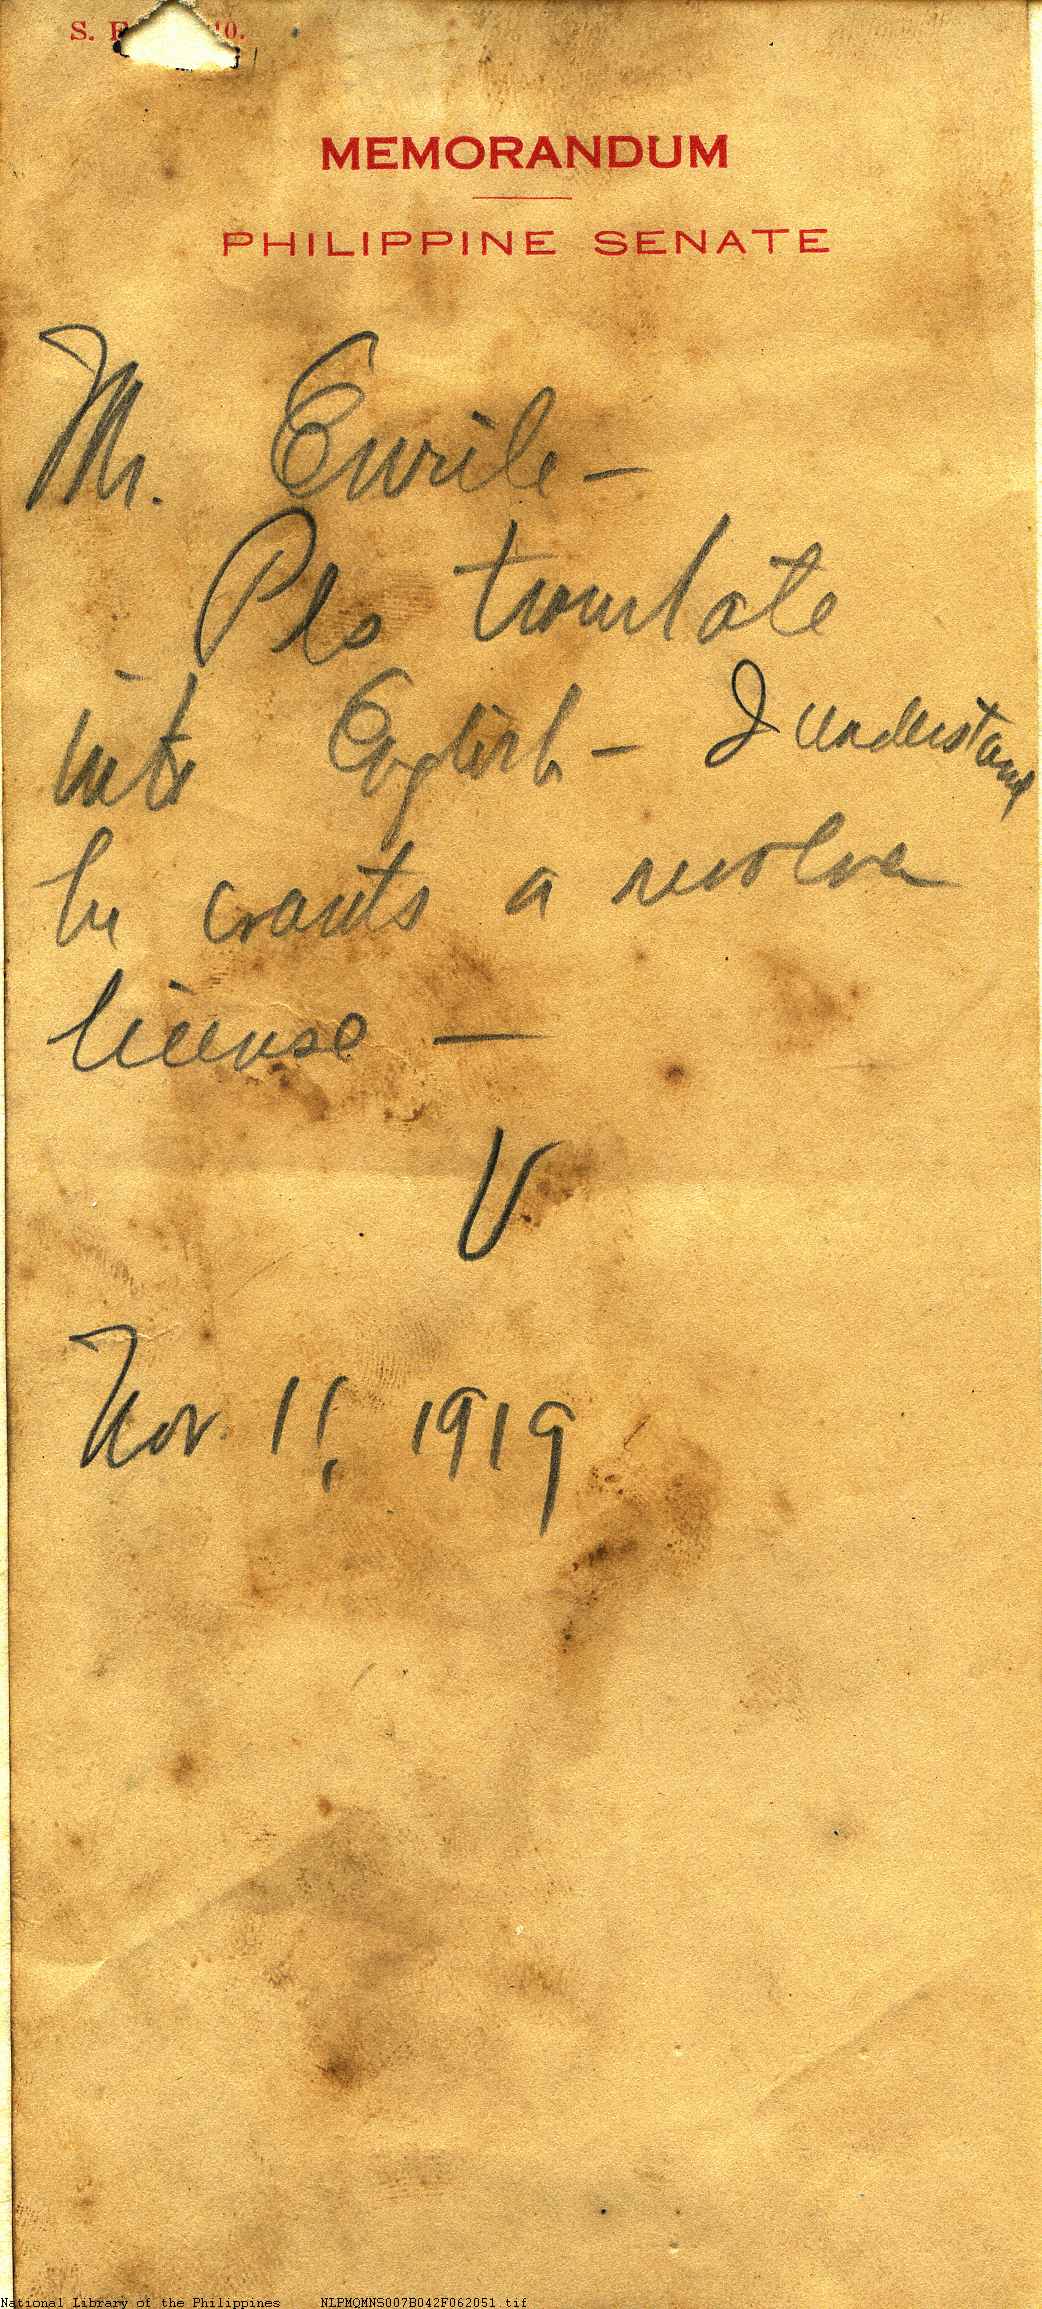 S. 10.
MEMORANDUM
PHILIPPINE SENATE
Mr. Enrile —
Pls translate
into English — I understand
he wants a revolver
license —
V
Nov. 11, 1919
National Library of the Philippines NLPMQMNS007B042F062051.tif